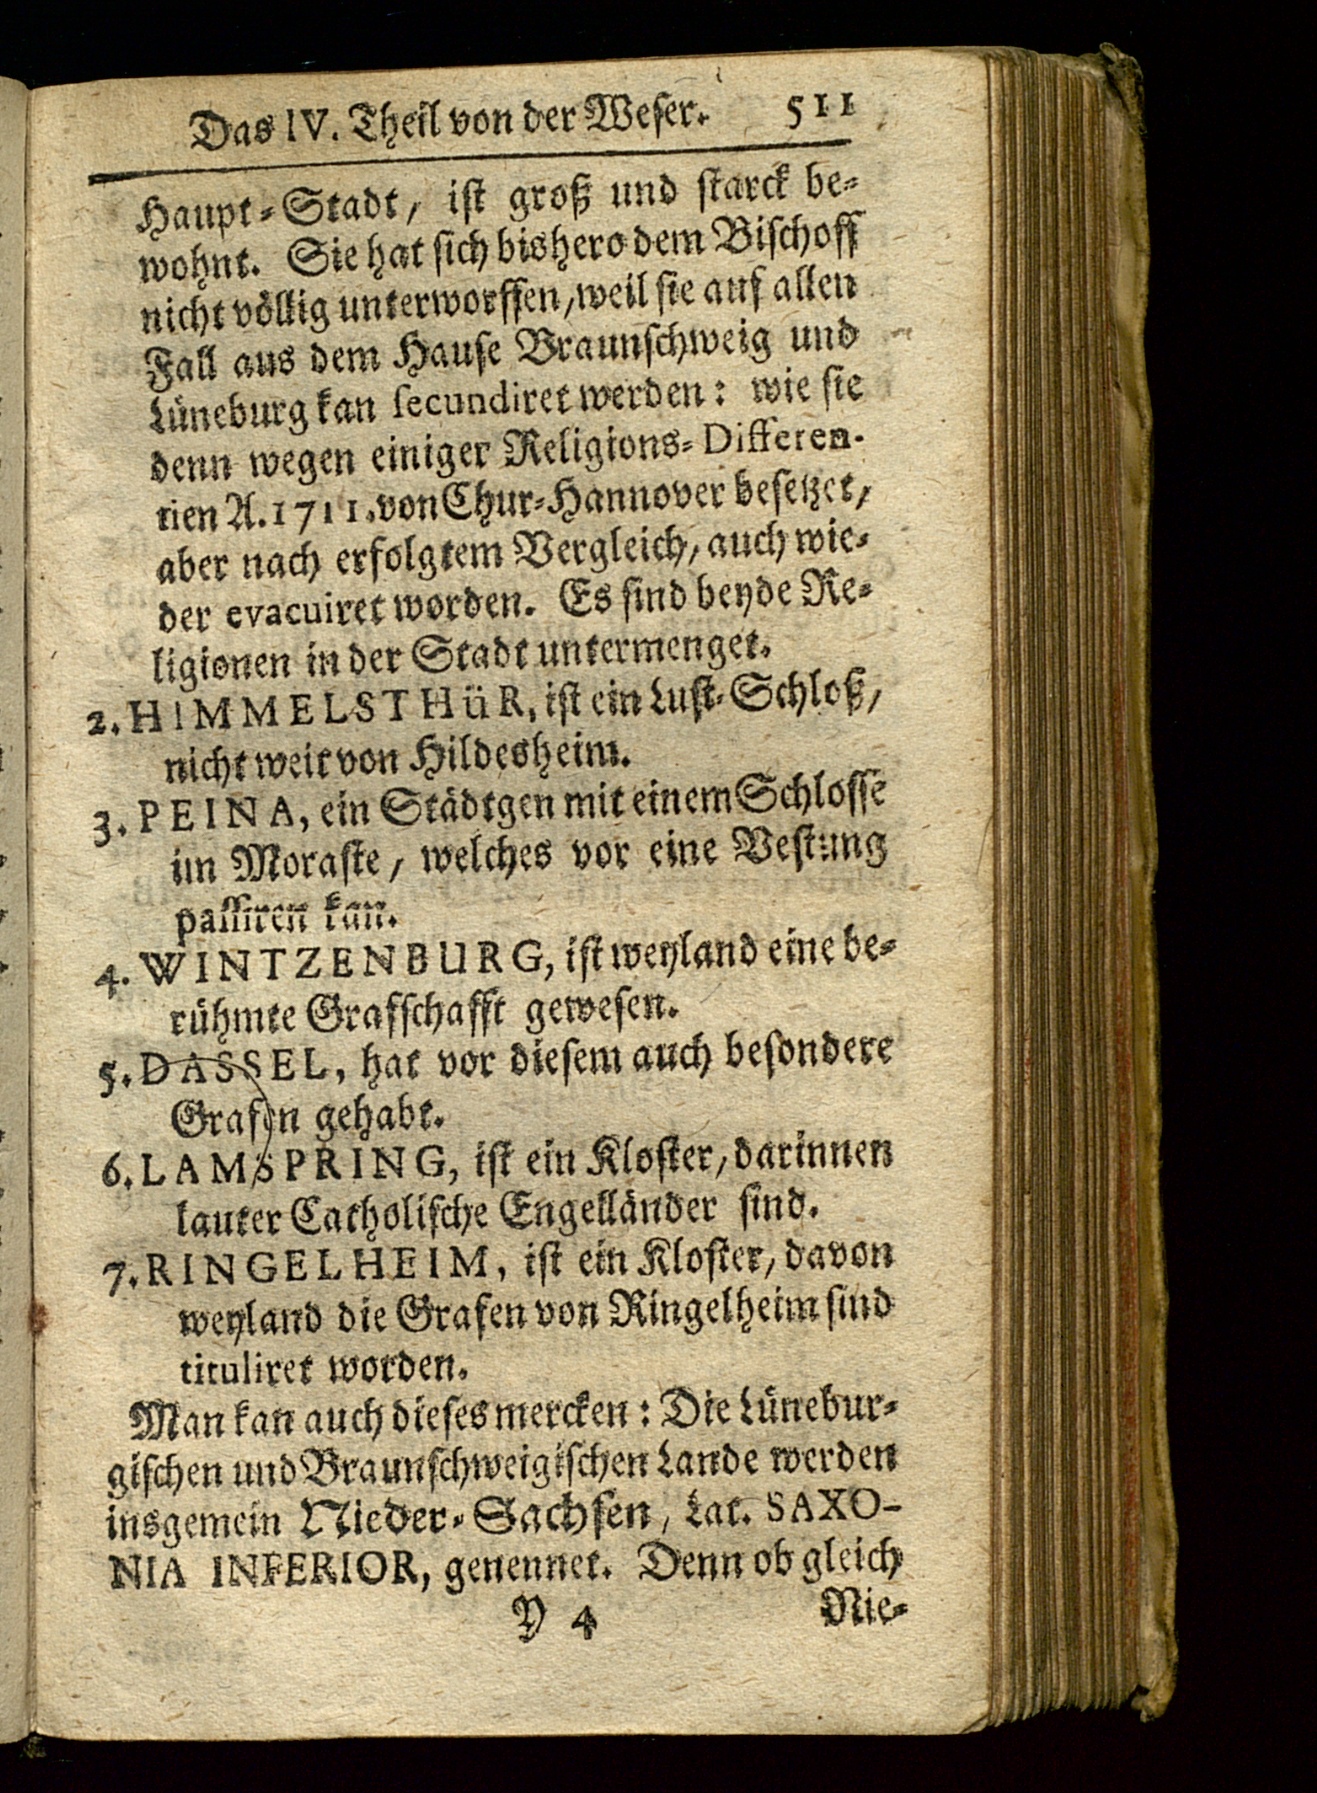 Das IV. Theil von der Weser. 511
Haupt-Stadt, ist groß und starck be-
wohnt. Sie hat sich bishero dem Bischoff
nicht völlig unterworffen, weil sie auf allen
Fall aus dem Hause Braunschweig und
Lüneburg kan secundiret werden: wie sie
denn wegen einiger Religions-Differen-
tien A. 1711. von Chur-Hannover besetzet,
aber nach erfolgtem Vergleich, auch wie-
der evacuiret worden. Es sind beyde Re-
ligionen in der Stadt untermenget.
2. HIMMELSTHüR, ist ein Lust-Schloß,
nicht weit von Hildesheim.
3. PEINA, ein Städtgen mit einem Schlosse
im Moraste, welches vor eine Vestung
passiren kan.
4. WINTZENBURG, ist weyland eine be-
rühmte Grafschafft gewesen.
5. DASSEL, hat vor diesem auch besondere
Grafen gehabt.
6. LAMSPRING, ist ein Kloster, darinnen
lauter Catholische Engelländer sind.
7. RINGELHEIM, ist ein Kloster, davon
weyland die Grafen von Ringelheim sind
tituliret worden.
Man kan auch dieses mercken: Die Lünebur-
gischen und Braunschweigischen Lande werden
insgemein Nieder-Sachsen, Lat. SAXO-
NIA INFERIOR, genennet. Denn ob gleich
Y 4 Nie-